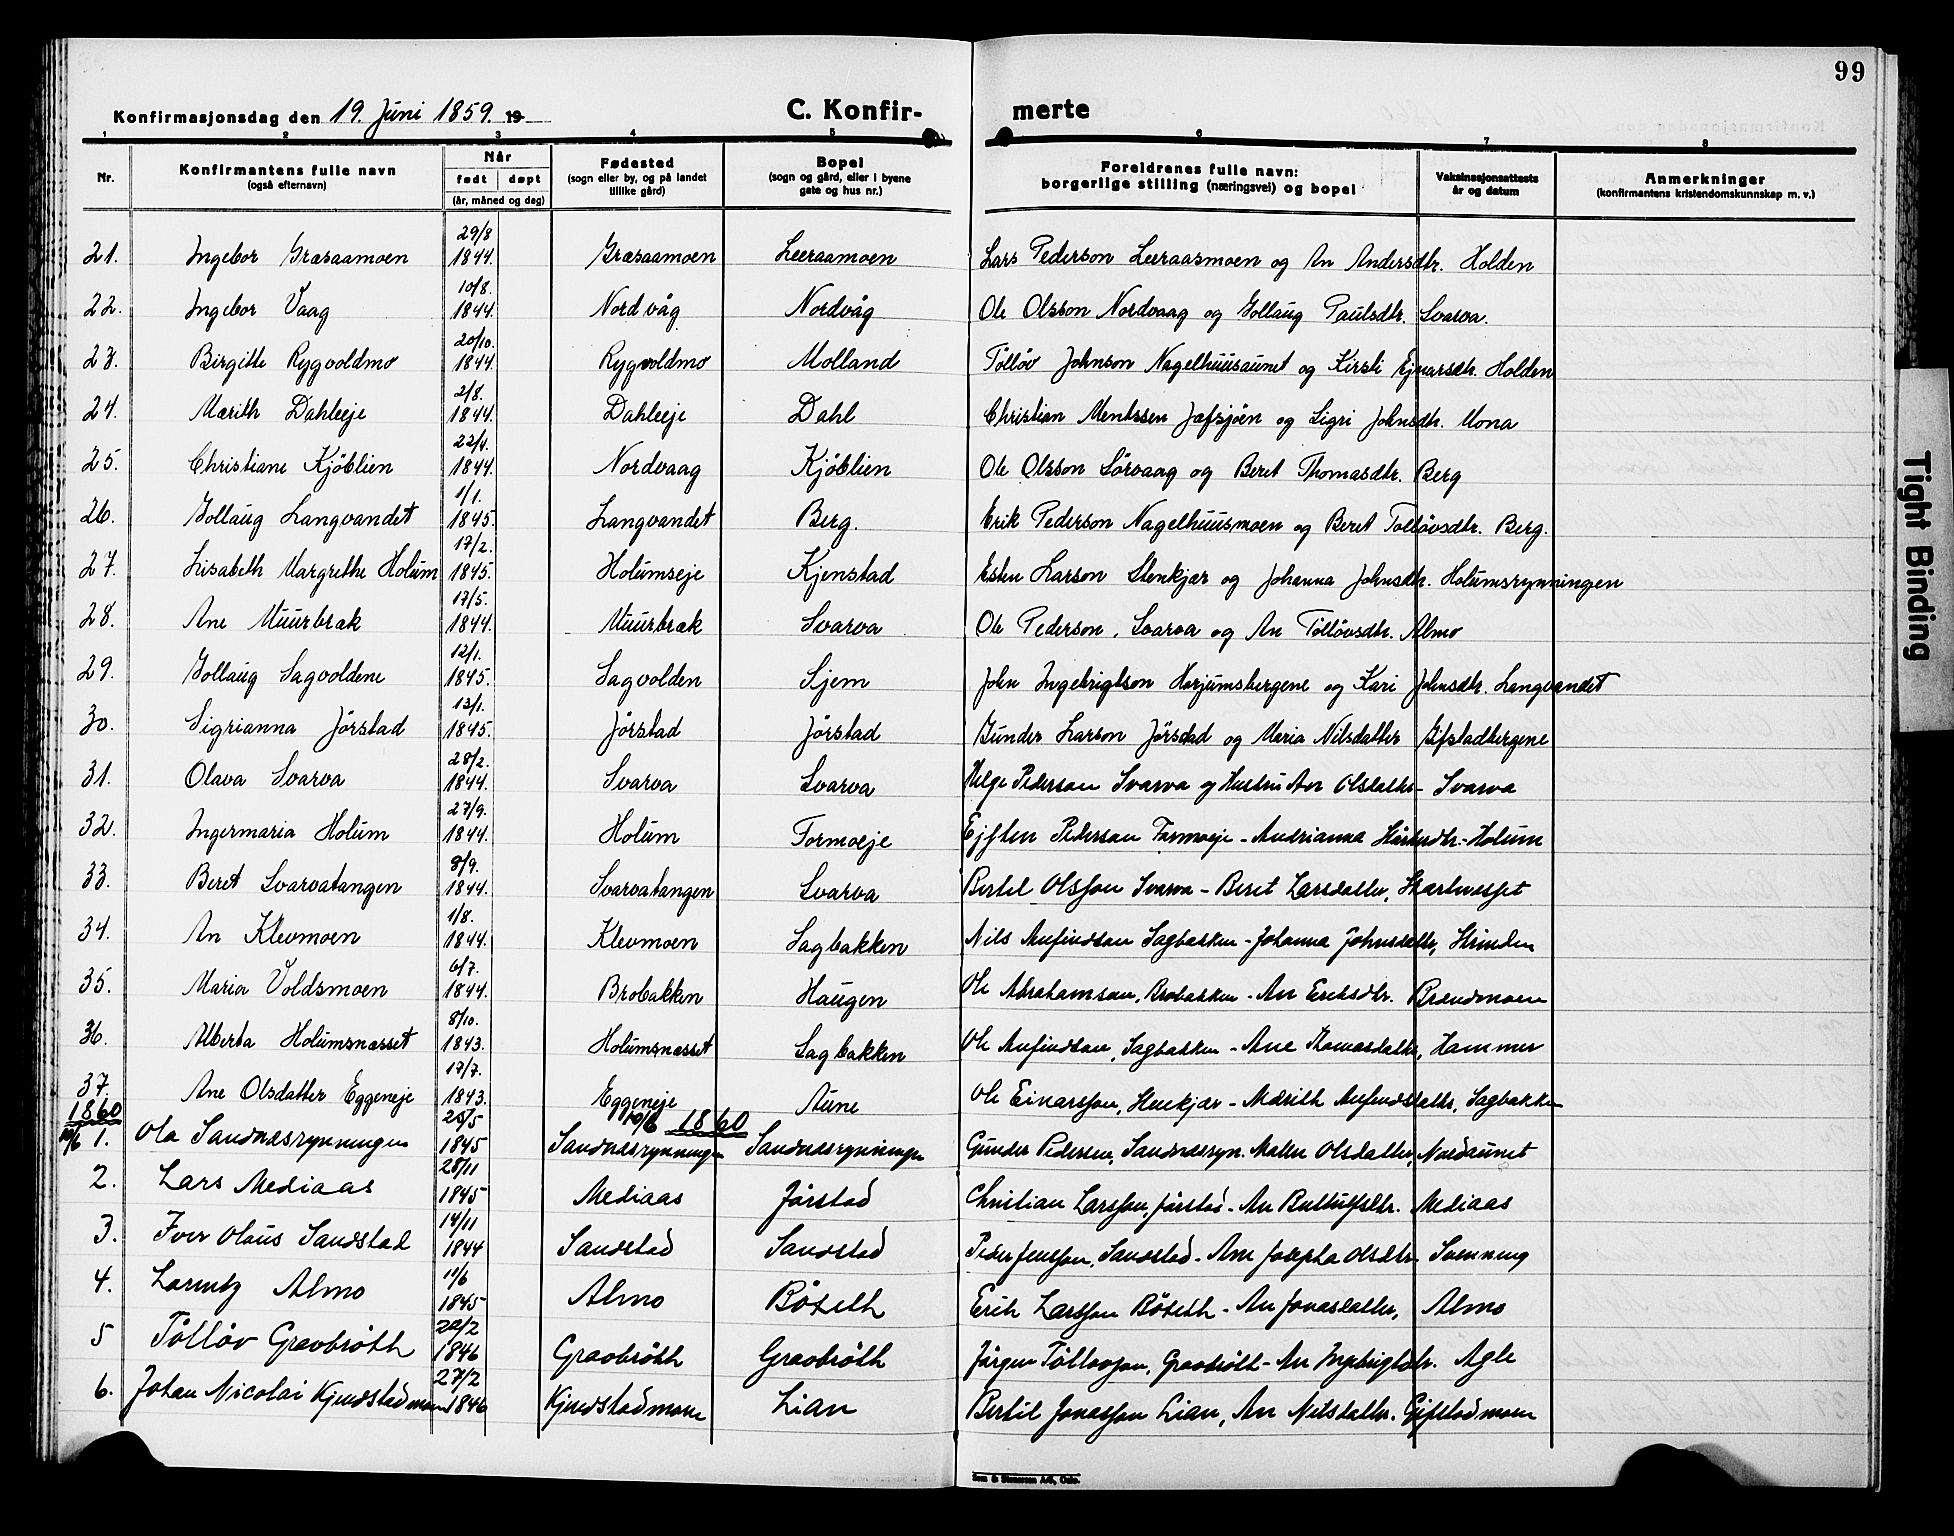 99
Konfirmasjonsdag den 19. Juni 1859. 19
C. Konfir-
merte
1 2 3 4 5 6 7 8
Nr.
Konfirmantens fulle navn
(også efternavn)
Når
født døpt
(år, måned og dag)
Fødested
(sogn eller by, og på landet
tillike gård)
Bopel
(sogn og gård, eller i byene
gate og hus nr.)
Foreldrenes fulle navn:
borgerlige stilling (næringsvei) og bopel
Vaksinasjonsattests
år og datum
Anmerkninger
(konfirmantens kristendomskunnskap m. v.)
21. Ingebor Græsaamoen 29/8 1844. Græsaamoen Leeraamoen Lars Pederson Leeraasmoen og An Andersdtr. Holden
22. Ingebor Vaag 10/8. 1844. Nordvåg Nordvåg Ole Olsson Nordvaag og Gollaug Paulsdtr. Svarva.
23. Birgitte Rygvoldmo 20/10. 1844. Rygvoldmo Molland Tölløv Johnson Nagelhuusaunet og Kirsti Ejnarsdtr. Holden
24. Mærith Dahleeje 2/8. 1844. Dahleeje Dahl Christian Mentssen Jæfsjöen og Sigri Johnsdtr. Mona
25. Christiane Kjöblien 22/4. 1844. Nordvaag Kjöblien Ole Olsson Sörvaag og Beret Thomasdtr. Berg
26. Gollaug Langvandet 1/1. 1845. Langvandet Berg. Erik Pederson Nagelhuusmoen og Beret Tollövsdtr. Berg.
27. Lisabeth Margrethe Holum 17/2. 1845. Holumseje Kjenstad Esten Larson Stenkjær og Johanna Johnsdtr. Holumsrynningen
28. Ane Muurbræk 17/5. 1844. Muurbræk Svarva Ole Pederson, Svarva og An Töllövsdtr. Almo
29. Gollaug Sagvoldene 12/1. 1845. Sagvolden Sjem John Ingebrigtson Harjumsbergene og Kari Johnsdtr. Langvandet
30. Sigrianna Jörstad 12/1. 1845. Jörstad Jörstad Gunder Larson Jörstad og Maria Nilsdatter Gifstadbergene
31. Olava Svarva 28/2. 1844. Svarva Svarva Helge Pederson Svarva og Hustru An Olsdatter Svarva
32. Ingermaria Holum 27/9. 1844. Holum Tormoeje Pederson Tormoeje - Andrianna Holum
33. Beret Svarvatangen 8/9. 1844. Svarvatangen Svarva Bertel Olsson Svarva - Beret Larsdatter,
34. An Klevmoen 1/8. 1844. Klevmoen Sagbakken Nils Anfindsen Sagbakken - Johanna Johnsdatter,
35. Maria Voldsmoen 6/7. 1844. Brobakken Haugen Ole Abrahamsen, Brobakken - An Eriksdtr. Brendmoen
36. Alberta Holumsnæsset 8/10. 1843. Holumsnæsset Sagbakken Ole Anfindsen, Sagbakken - Ane Tomasdatter, Hammer
37. Ane Olsdatter Eggeneje 17/7. 1843. Eggeneje Aune Ole Einarsson, Stenkjær - Mærith Anfindsdatter, Sagbakken
1860 10/6 1860
10/6 1. Ola Sandnæsrynningen 25/5 1845 Sandnæsrynningen Sandnæsrynningen Gunder Pedersen, Sandnæsryn. Malen Olsdatter, Nordaunet
2. Lars Mediaas 28/11 1845 Mediaas Jörstad Christian Larsson, Jörstad - An Mediaas
3. Iver Olaus Sandstad 14/11 1844 Sandstad Sandstad Peder Jensson, Sandstad - Ane Josepha Olsdtr. Svenning
4. Lorentz Almo 11/6 1845 Almo Böteth Erik Larsson Böteth - An Jonasdatter, Almo
5 Tölløv Gravbröth 22/2 1846 Gravbröth Gravbröth Jörgen Töllovson, Gravbröth - An Ingebrigtsdtr. Agle
6. Johan Nicolai Kjendstadmoen 27/2 1846 Kjendstadmoen Lian Bertil Jonasson Lian, An Nilsdatter. Gifstadmoen
Tight Binding